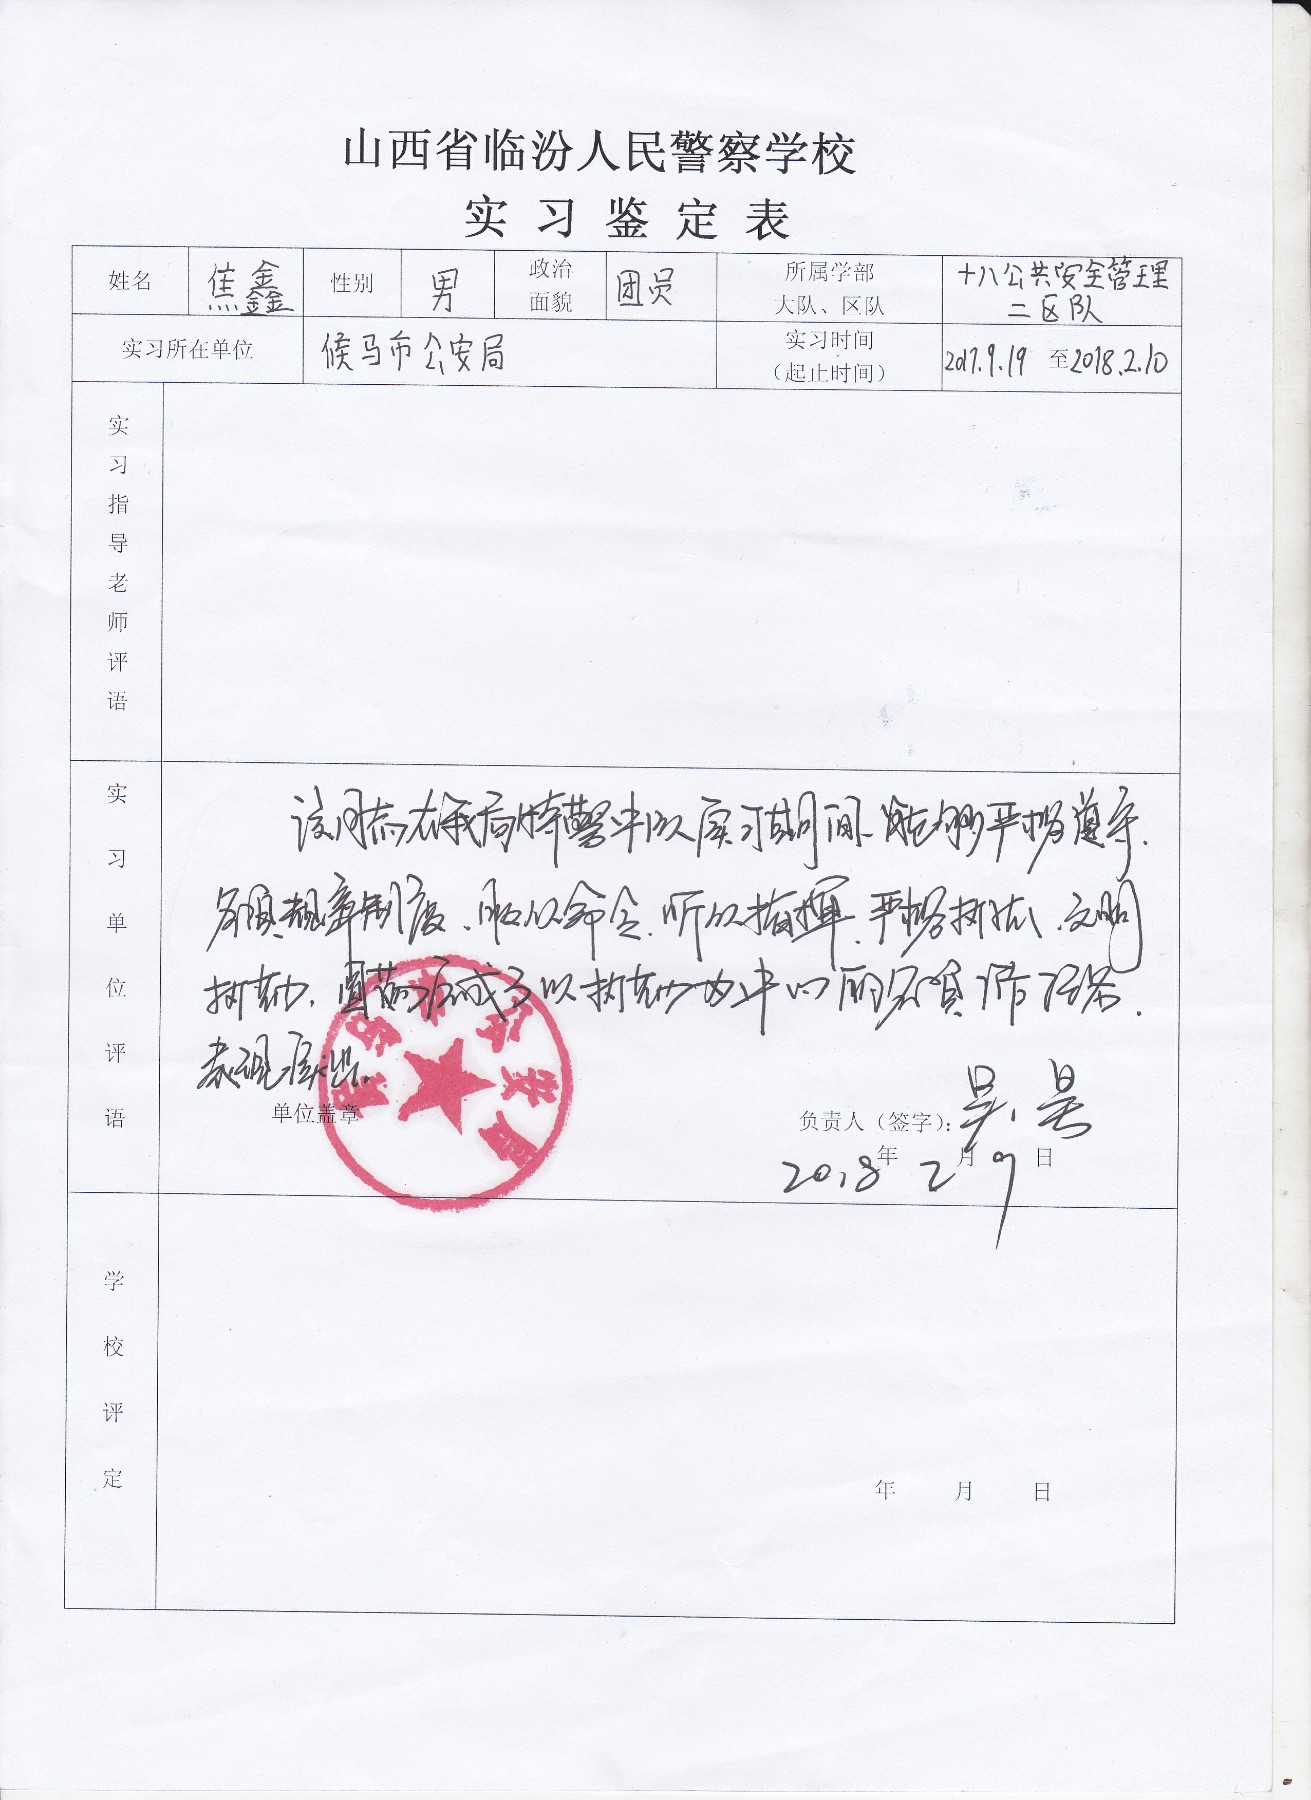 山西省临汾人民警察学校
实习鉴定表
姓名 焦鑫 性别 男 政治面貌 团员 所属学部大队、区队 十八公共安全管理二区队
实习所在单位 候马市公安局 实习时间(起止时间) 2017.9.19 至2018.2.10
实习指导老师评语
实习单位评语
该同志在我局特警中队实习期间、能够严格遵守
各项规章制度、服从命令、听从指挥、严格执法、文明
执勤、圆满完成了以执勤为中心的各项工作任务、
表现突出。
单位盖章
负责人（签字）：吴昊
2018年2月9日
学校评定
年 月 日